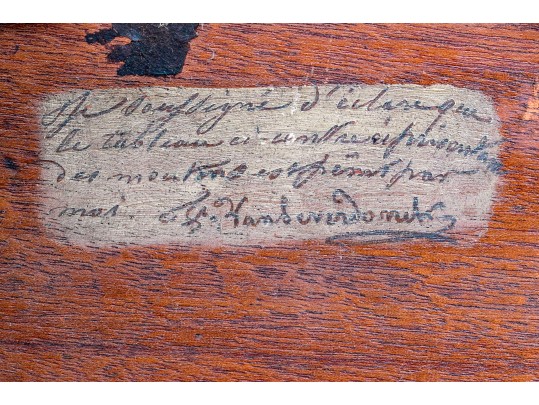 Je soussigné déclare que
le tableau ci-contre représentant
des moutons est peint par
moi. C. Vanleemputten